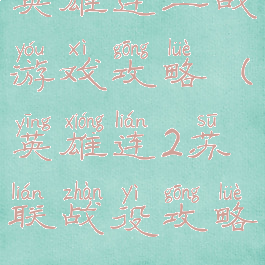 英雄连二战
yóu xì gōng lüè
游戏攻略(
yīng xióng lián sū
英雄连2苏
lián zhàn yì gōng lüè
联战役攻略